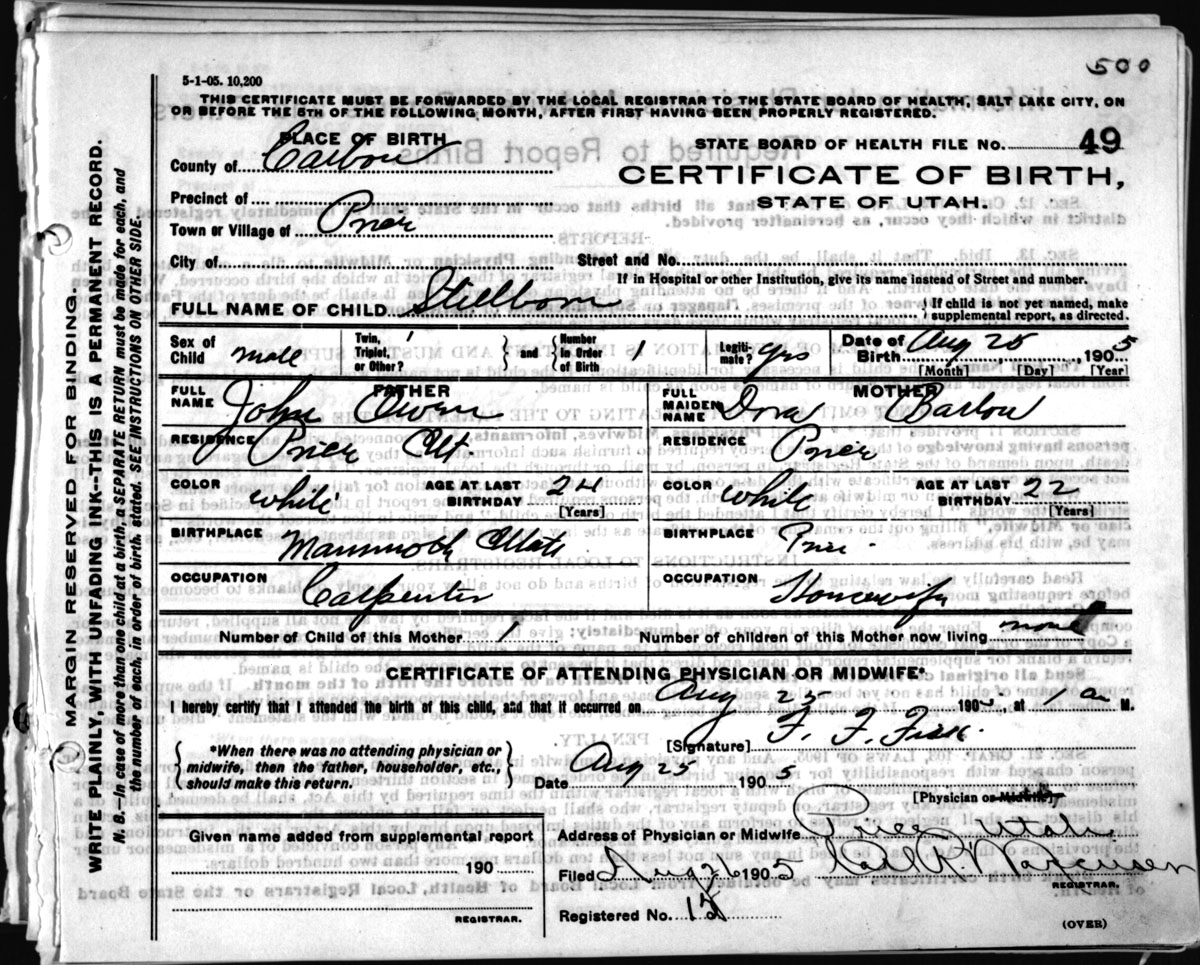 500
5-1-05. 10,200
THIS CERTIFICATE MUST BE FORWARDED BY THE LOCAL REGISTRAR TO THE STATE BOARD OF HEALTH, SALT LAKE CITY, ON
OR BEFORE THE 5TH OF THE FOLLOWING MONTH, AFTER FIRST HAVING BEEN PROPERLY REGISTERED.
PLACE OF BIRTH
STATE BOARD OF HEALTH FILE No. 49
County of Carbon
CERTIFICATE OF BIRTH,
STATE OF UTAH.
Precinct of
Town or Village of Price
City of Street and No.
If in Hospital or other Institution, give its name instead of Street and number.
FULL NAME OF CHILD Stillborn { If child is not yet named, make
supplemental report, as directed.
Sex of Child male Twin, Triplet, or Other? 1 } and { Number in Order of Birth 1 Legiti-mate? yes Date of Birth Aug 25, 1905
[Month] [Day] [Year]
FATHER MOTHER
FULL NAME John Owen FULL MAIDEN NAME Dora
RESIDENCE Price Ut. RESIDENCE Price
COLOR white AGE AT LAST BIRTHDAY 24 [Years] COLOR white AGE AT LAST BIRTHDAY 22 [Years]
BIRTHPLACE Mammoth Utah BIRTHPLACE Price
OCCUPATION Carpenter OCCUPATION Housewife
Number of Child of this Mother 1 Number of children of this Mother now living none
CERTIFICATE OF ATTENDING PHYSICIAN OR MIDWIFE*
I hereby certify that I attended the birth of this child, and that it occurred on Aug 25 1905, at 1 a M.
{ *When there was no attending physician or
midwife, then the father, householder, etc.,
should make this return. }
[Signature] F. F. Fisk.
Date Aug 25 1905
[Physician or Midwife]
Given name added from supplemental report
190
REGISTRAR.
Address of Physician or Midwife Price Utah
Filed Aug 26 1905 Carl R. Marcusen
REGISTRAR.
Registered No. 12
(OVER)
MARGIN RESERVED FOR BINDING.
WRITE PLAINLY, WITH UNFADING INK--THIS IS A PERMANENT RECORD.
N. B.--In case of more than one child at a birth, a SEPARATE RETURN must be made for each, and
the number of each, in order of birth, stated. SEE INSTRUCTIONS ON OTHER SIDE.